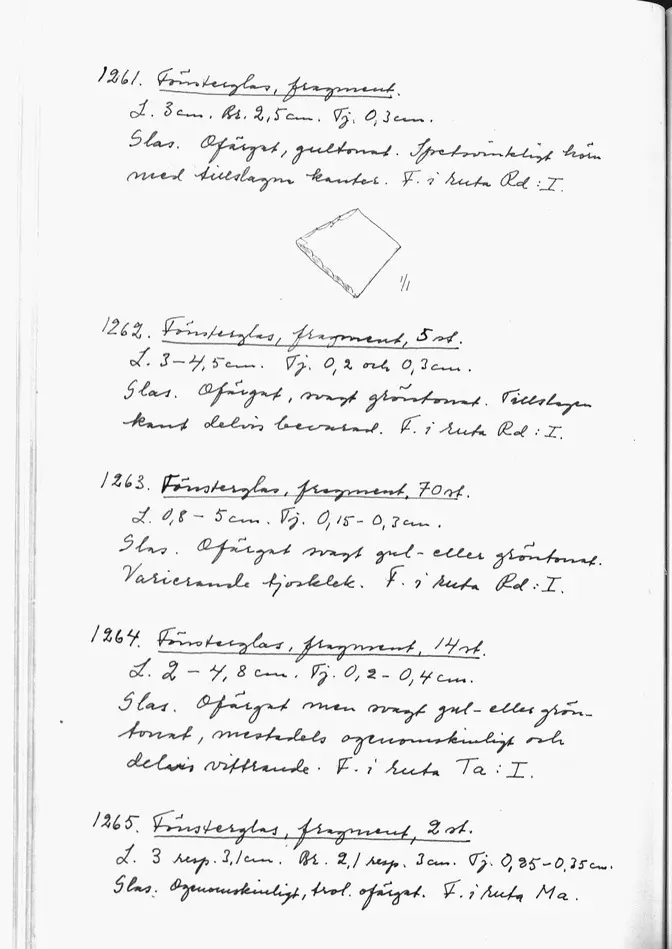 1261. Fönsterglas, fragment.
L. 3cm. Br. 2,5cm. Tj. 0,3cm.
Glas. Ofärgat, gultonat. Spetsvinkligt hörn
med tillslagna kanter. F. i ruta Rd : I.
1/1
1262. Fönsterglas, fragment, 5 st.
L. 3-4,5cm. Tj. 0,2 och 0,3cm.
Glas. Ofärgat, svagt gröntonat. Tillslagen
kant delvis bevarad. F. i ruta Rd : I.
1263. Fönsterglas, fragment, 70 st.
L. 0,8 - 5cm. Tj. 0,15 - 0,3cm.
Glas. Ofärgat svagt gul- eller gröntonat.
Varierande tjocklek. F. i ruta Rd : I.
1264. Fönsterglas, fragment, 14 st.
L. 2 - 4,8cm. Tj. 0,2 - 0,4cm.
Glas. Ofärgat men svagt gul- eller grön-
tonat, mestadels ogenomskinligt och
delvis vittrande. F. i ruta Ta : I.
1265. Fönsterglas, fragment, 2 st.
L. 3 resp. 3,1cm. Br. 2,1 resp. 3cm. Tj. 0,25-0,35cm.
Glas. Ogenomskinligt, trol. ofärgat. F. i ruta Ma.